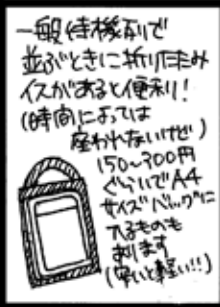 一般待機列で
並ぶときに折りたたみ
イスがあると便利!
(時間によっては
座われないけど)
150〜300円
ぐらいでA4
サイズバッグに
入るものも
あります
(安いと軽い!!)